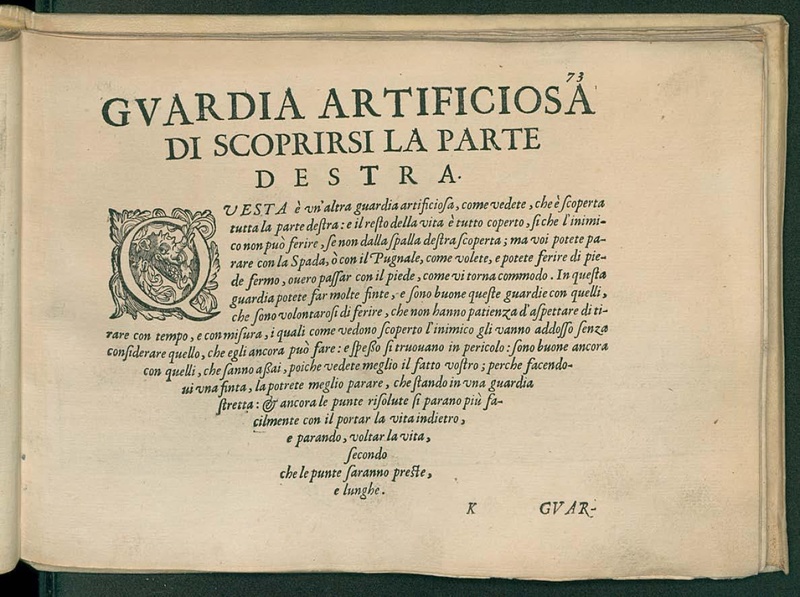 73
GVARDIA ARTIFICIOSA
DI SCOPRIRSI LA PARTE
DESTRA.
QVESTA è vn'altra guardia artificiosa, come vedete, che è scoperta
tutta la parte destra: e il resto della vita è tutto coperto, si che l'inimi-
co non può ferire, se non dalla spalla destra scoperta; ma voi potete pa-
rare con la Spada, ò con il Pugnale, come volete, e potete ferire di pie-
de fermo, ouero passar con il piede, come vi torna commodo. In questa
guardia potete far molte finte, e sono buone queste guardie con quelli,
che sono volontarosi di ferire, che non hanno patienza d'aspettare di ti-
rare con tempo, e con misura, i quali come vedono scoperto l'inimico gli vanno addosso senza
considerare quello, che egli ancora può fare: e spesso si truouano in pericolo: sono buone ancora
con quelli, che sanno assai, poiche vedete meglio il fatto vostro; perche facendo-
ui vna finta, la potrete meglio parare, che stando in vna guardia
stretta: & ancora le punte risolute si parano più fa-
cilmente con il portar la vita indietro,
e parando, voltar la vita,
secondo
che le punte saranno preste,
e lunghe.
K GVAR-